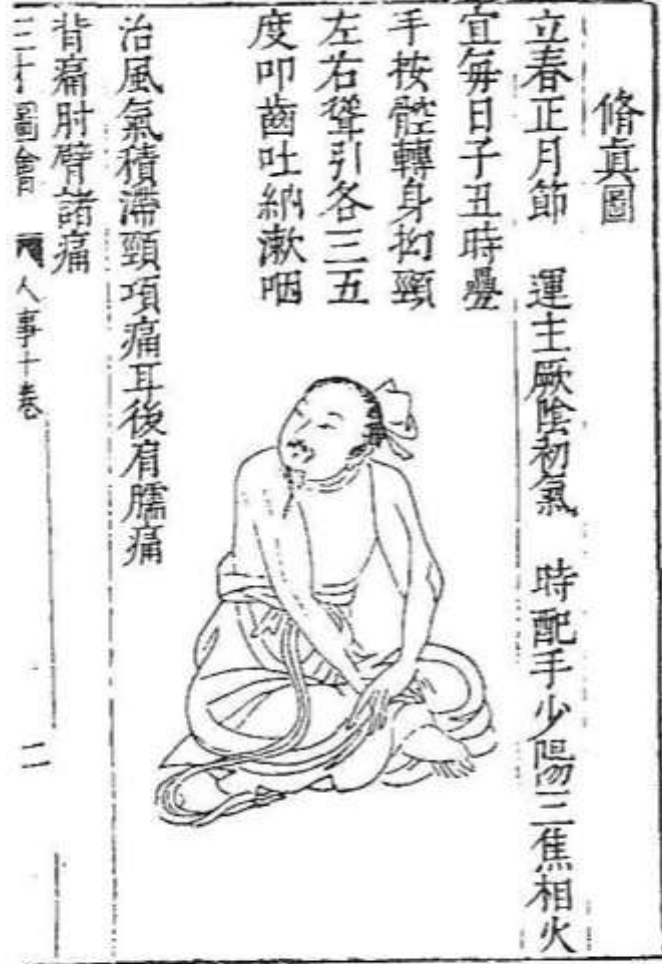 脩眞圖
立春正月節　運主厥陰初氣　時配手少陽三焦相火
宜每日子丑時疊
手按䏶轉身拗頸
左右聳引各三五
度叩齒吐納漱咽
治風氣積滯頸項痛耳後肩臑痛
背痛肘臂諸痛
三才圖會　人事十卷　二